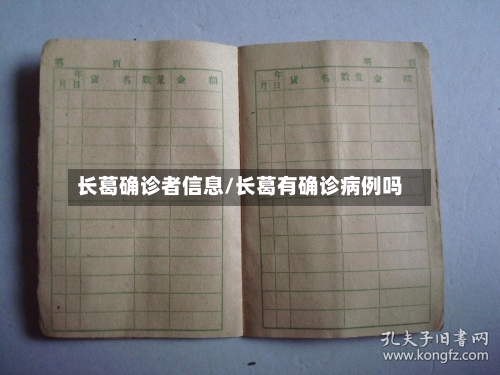 第 頁
年
月 日 貨 名 數量 金 額
第 頁
年
月 日 貨 名 數量 金 額
长葛确诊者信息/长葛有确诊病例吗
孔夫子旧书网
www.kongfz.com